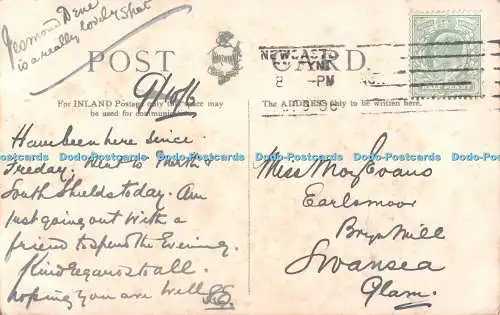 Jesmond Dene
is a really lovely spot
POST CARD.
NEWCASTLE
TYNE
8 -PM
HALF PENNY
For INLAND Postage only this space may
be used for communication.
The ADDRESS Only to be written here.
Have been here since
Friday. Went to North &
South Shields today. Am
just going out with a
friend to spend the Evening.
Kind regards to all.
hoping you are well
Miss May Evans
Earlsmoor
Bryn Mill
Swansea
Glam.
Dodo-Postcards Dodo-Postcards Dodo-Postcards Dodo-Postcards Dodo-Postcards Dodo-Postcards